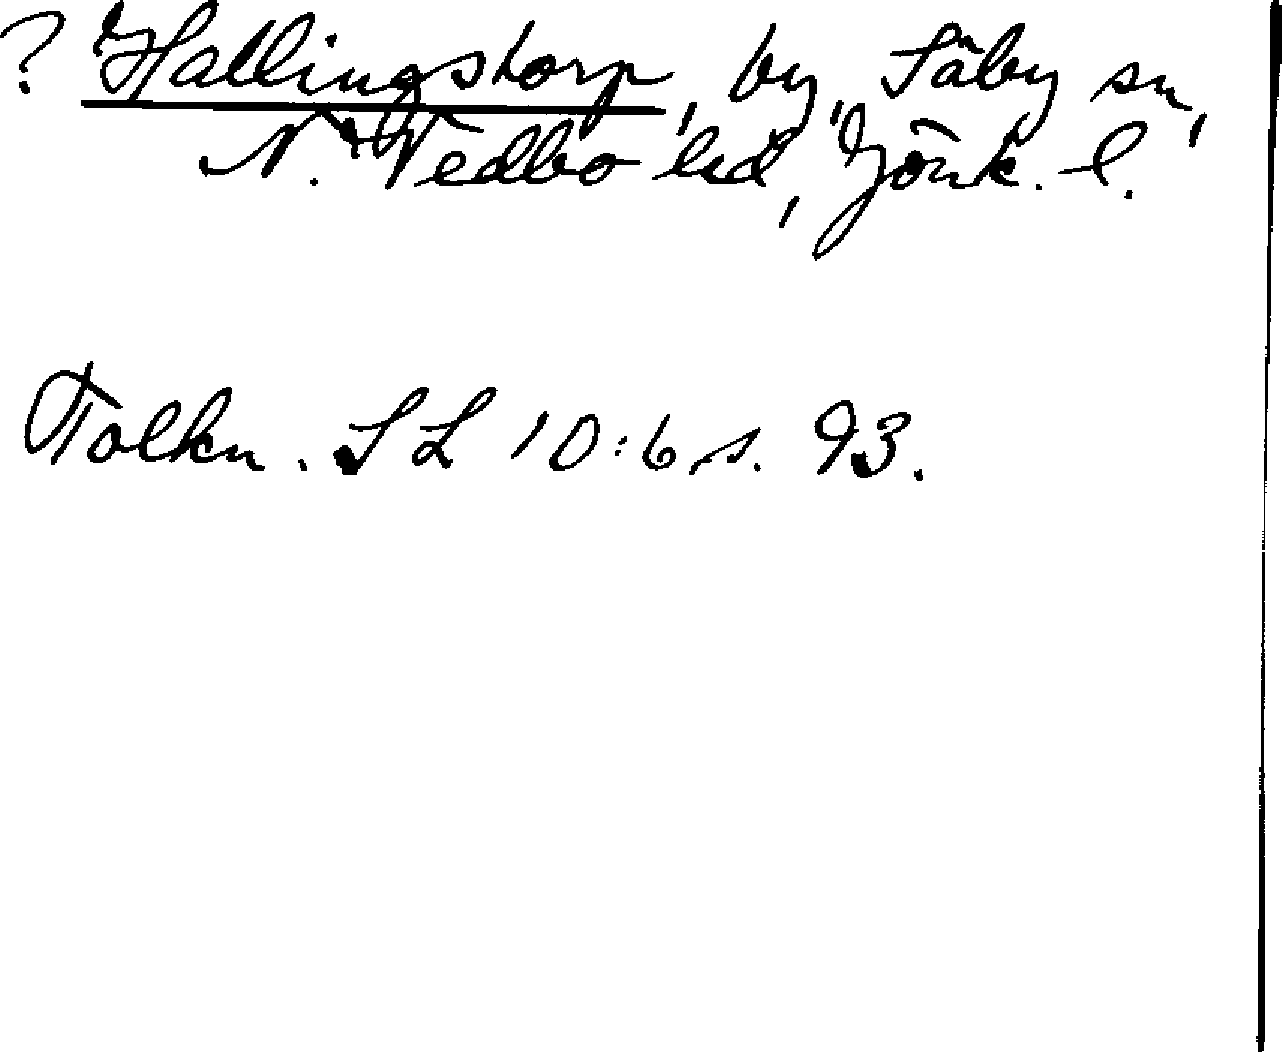 ? Hallingstorp, by, Säby sn,
N. Vedbo hd, Jönk. l.
Tolkn. SL 10:6 s. 93.